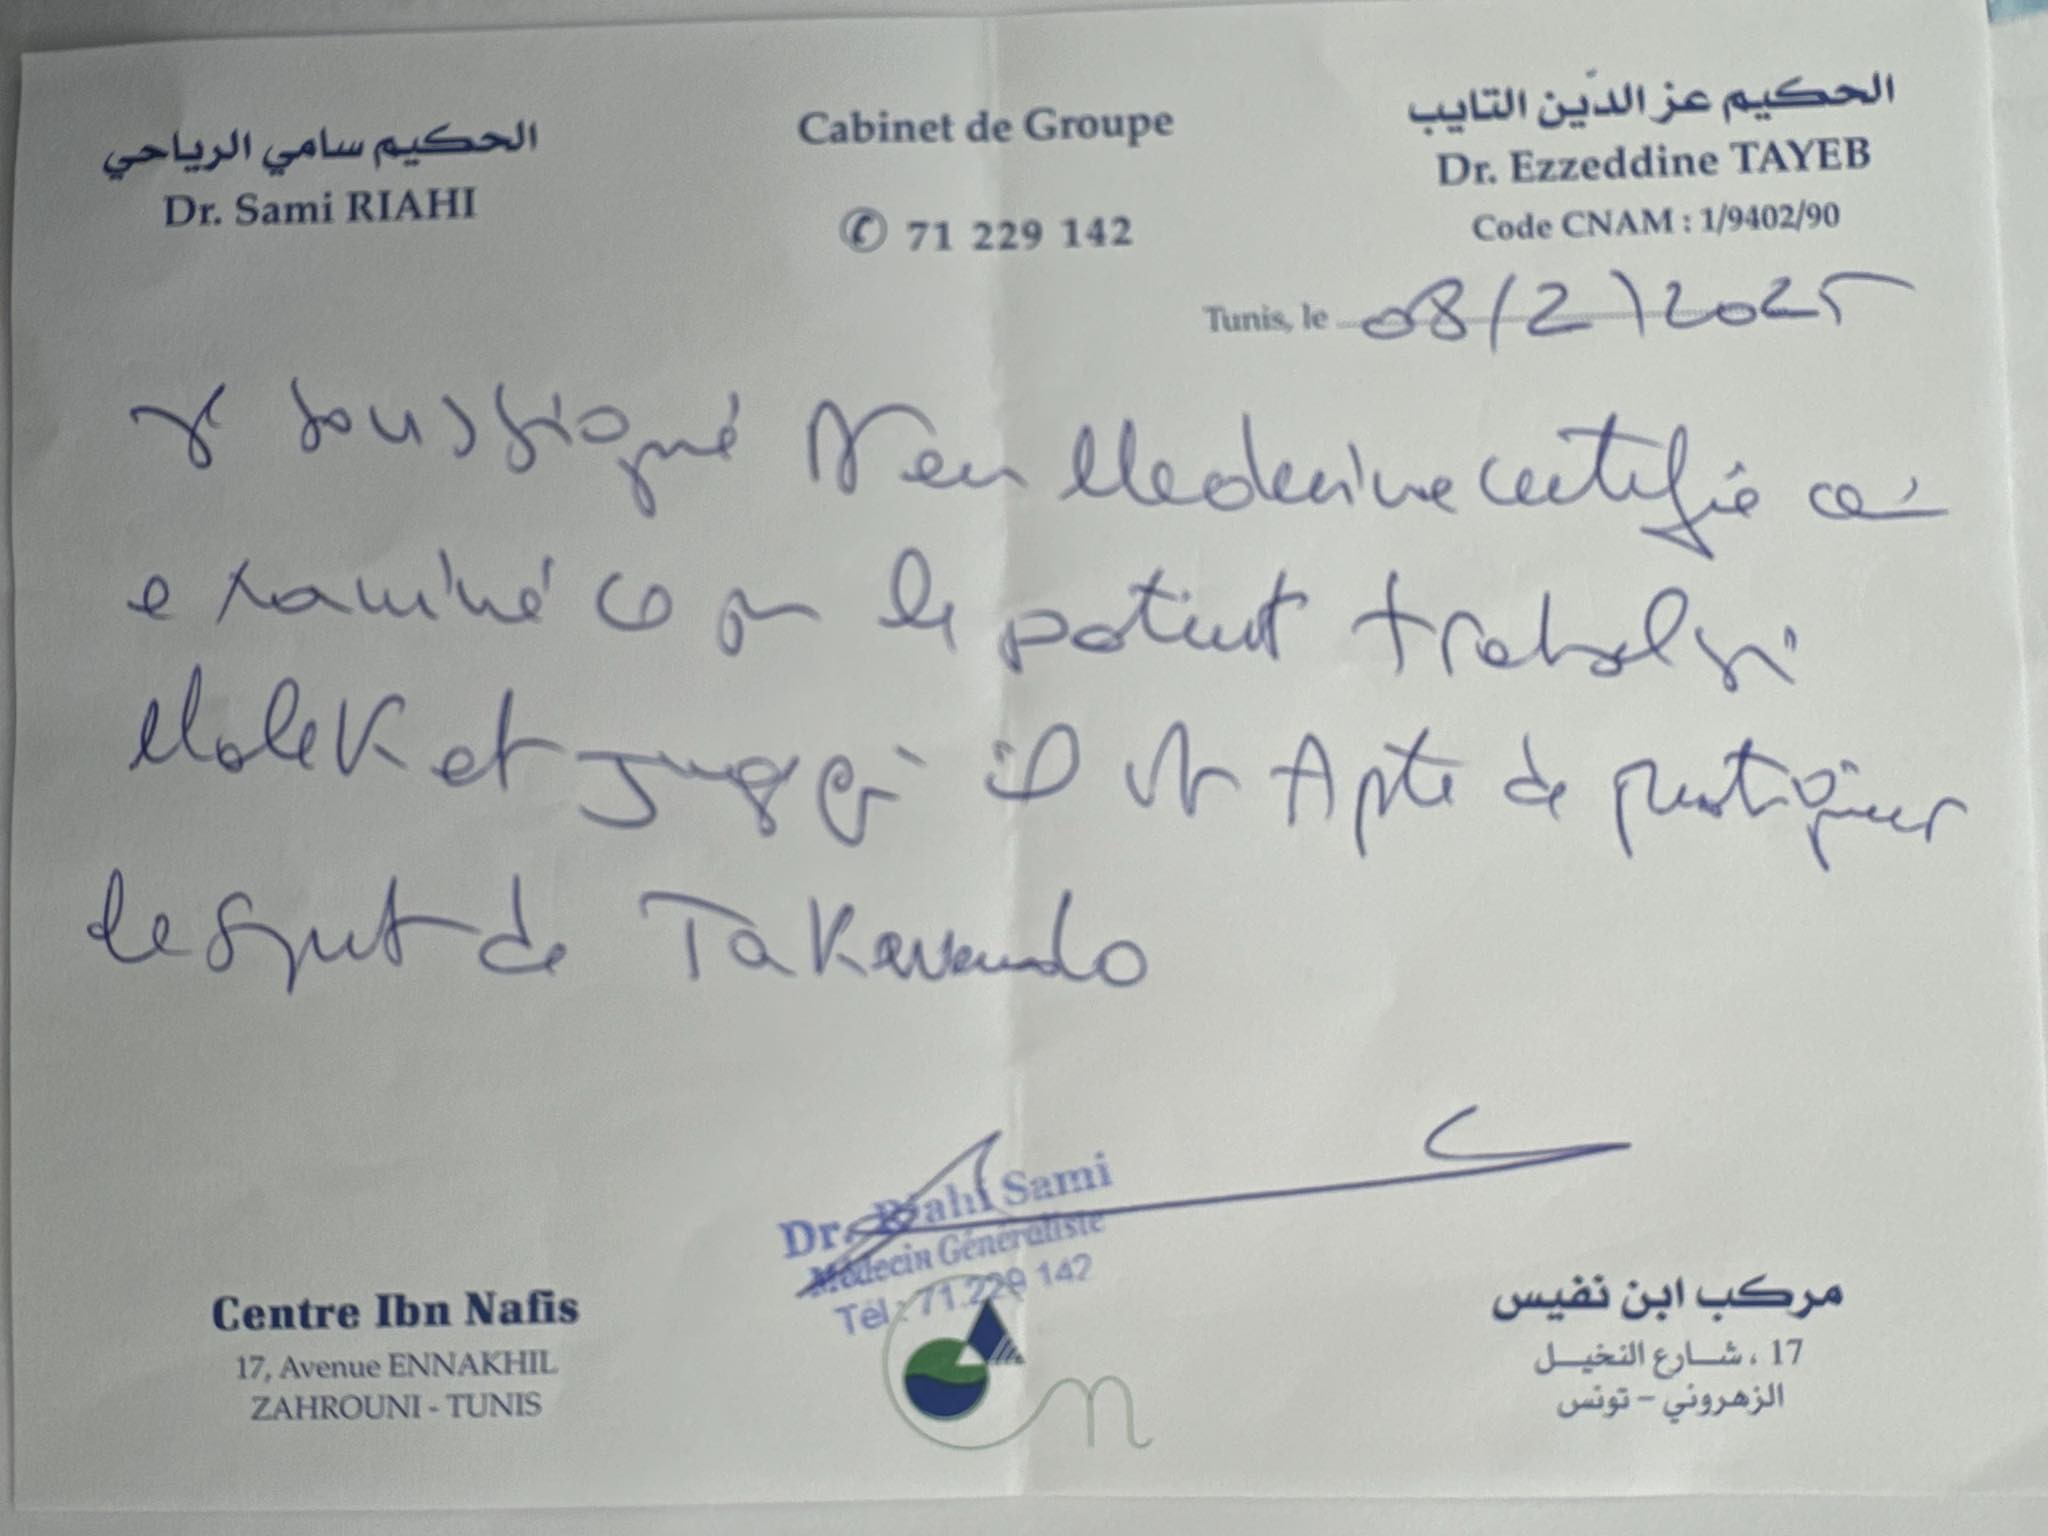 الحكيم سامي الرياحي
Dr. Sami RIAHI
Cabinet de Groupe
✆ 71 229 142
الحكيم عز الدّين التايب
Dr. Ezzeddine TAYEB
Code CNAM : 1/9402/90
Tunis, le 08/2/2025
soussigné Dr en Medecine certifie
examiné ce jour le patient trabelsi
Malek et jugé il est Apte de pratiquer
le sport de Takewendo
Dr. Riahi Sami
Médecin Généraliste
Tél : 71.229 142
Centre Ibn Nafis
17, Avenue ENNAKHIL
ZAHROUNI - TUNIS
مركب ابن نفيس
17 ، شارع النخيل
الزهروني - تونس